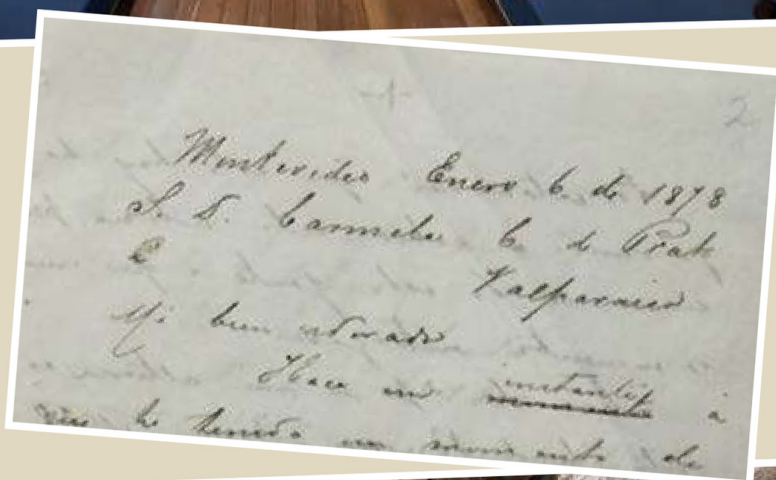 2
Montevideo Enero 6 de 1878
S. D. Carmela C. de Prat
Valparaiso
Mi bien adorado
Hace un instante
que he tenido un de